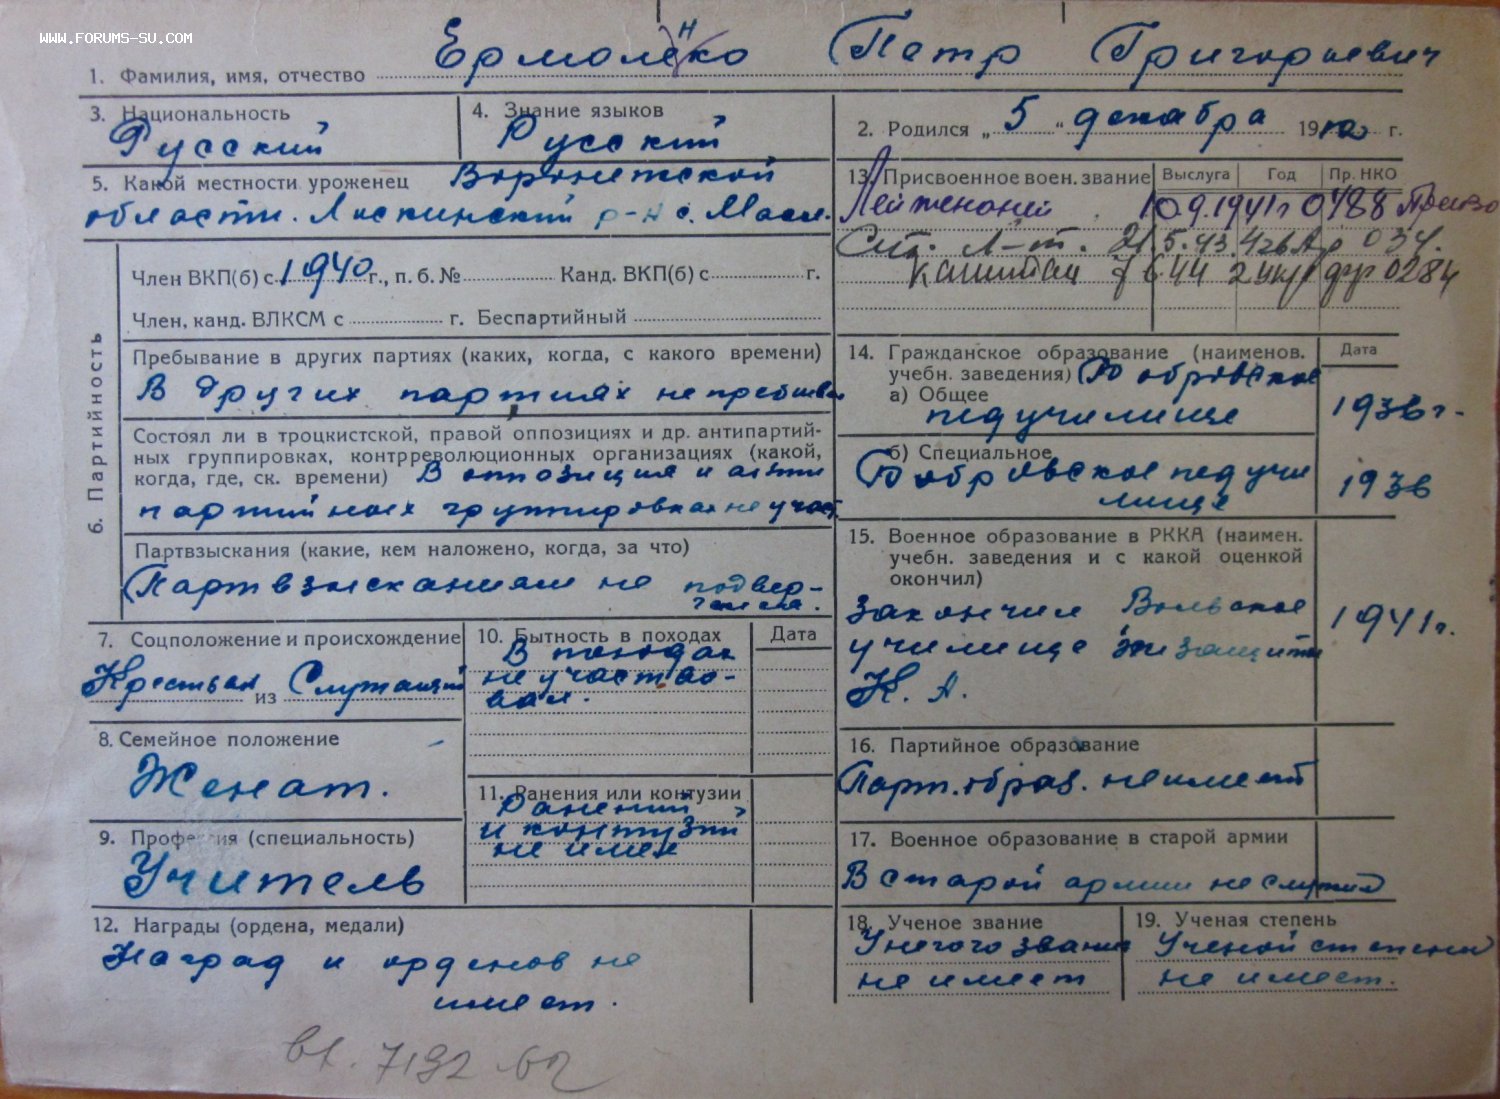 WWW.FORUMS-SU.COM
1. Фамилия, имя, отчество Ермоленко Петр Григорьевич
3. Национальность
Русский
4. Знание языков
Русский
2. Родился „ 5 “ декабря 19 г.
5. Какой местности уроженец Воронежской
области. Лискинский р-н с. Масл.
6. Партийность
Член ВКП(б) с 1940 г., п. б. № Канд. ВКП(б) с г.
Член, канд. ВЛКСМ с г. Беспартийный
Пребывание в других партиях (каких, когда, с какого времени)
В других партиях не пребывал
Состоял ли в троцкистской, правой оппозициях и др. антипартий-
ных группировках, контрреволюционных организациях (какой,
когда, где, ск. времени) В оппозиция и анти
партийных группировках не учас.
Партвзыскания (какие, кем наложено, когда, за что)
Партвзысканиям не подвер-
7. Соцположение и происхождение
Крестьян из Служащий
8. Семейное положение
Женат.
9. Профессия (специальность)
Учитель
10. Бытность в походах
Дата
В походах
не участво-
вал.
11. Ранения или контузии
Ранений
и контузий
не имел
12. Награды (ордена, медали)
Наград и орденов не
имеет.
13. Присвоенное воен. звание Выслуга Год Пр. НКО
Лейтенант 10.9.1941г 0488
Ст. Л-т. 21.5.43. 034.
Капитан 7 6 44 2 укр фр 0284
14. Гражданское образование (наименов.
учебн. заведения) Бобровское
Дата
а) Общее
педучилище
1936г.
б) Специальное
Бобровское педучи
лище
1936
15. Военное образование в РККА (наимен.
учебн. заведения и с какой оценкой
окончил)
закончил Вольское
училище химзащиты
К. А.
1941г.
16. Партийное образование
Парт. образ. не имеет
17. Военное образование в старой армии
В старой армии не служил
18. Ученое звание
Ученого звания
не имеет
19. Ученая степень
Ученой степени
не имеет.
вх. 7192